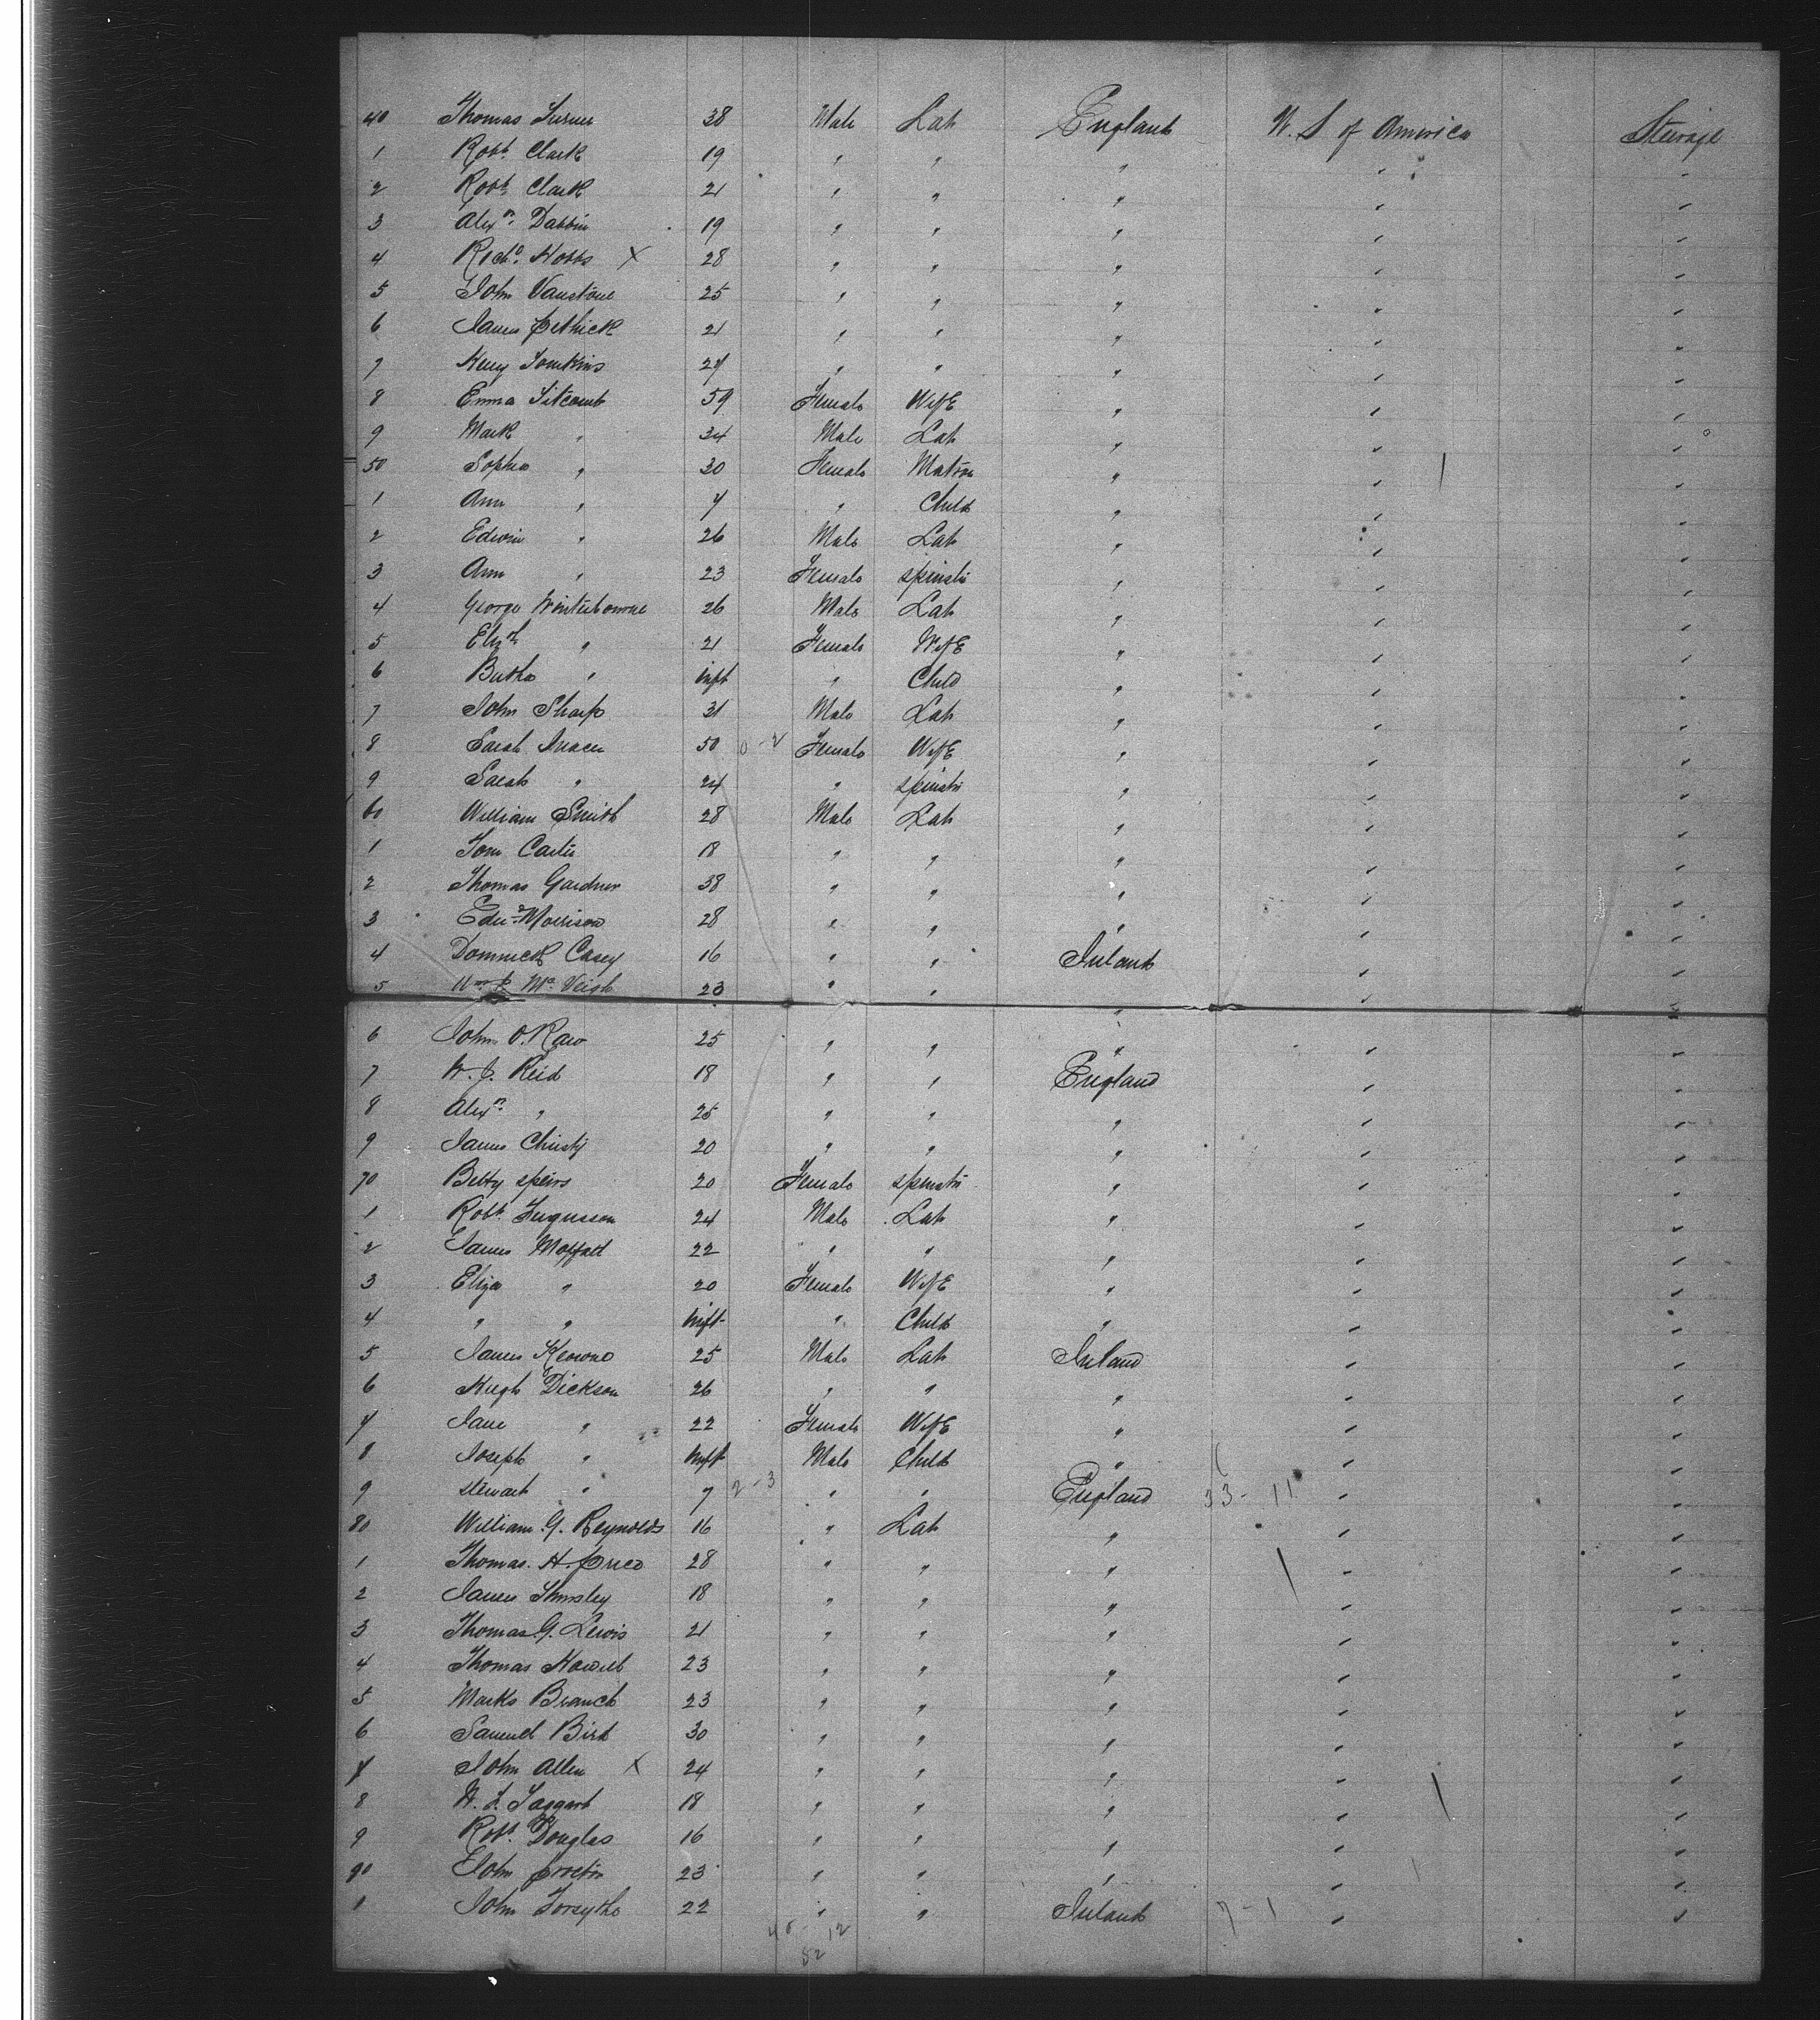 40 Thomas Turner 38 Male Lab England U. S of America Steerage
1 Robt. Clark 19 " " " " "
2 Robt. Clark 21 " " " " "
3 Alexr. Dabbin 19 " " " " "
4 Richd. Hobbs X 28 " " " " "
5 John Vanstone 25 " " " " "
6 James Pethick 21 " " " " "
7 Henry Tomkins 27 " " " " "
8 Emma Titcomb 59 Female Wife " " "
9 Mark " 34 Male Lab " " "
50 Sophia " 30 Female Matron " " "
1 Ann " 7 " Child " " "
2 Edwin " 26 Male Lab " " "
3 Ann " 23 Female Spinstr " " "
4 George Winterbourne 26 Male Lab " " "
5 Elizth " 21 Female Wife " " "
6 Bertha " inft " Child " " "
7 John Sharp 31 Male Lab " " "
8 Sarah 50 0-2 Female Wife " " "
9 Sarah " 24 " Spinstr " " "
60 William Smith 28 Male Lab " " "
1 Tom Carter 18 " " " " "
2 Thomas Gardner 38 " " " " "
3 Edwd. Morrison 28 " " " " "
4 Dominick Casey 16 " " Ireland " "
5 Wm J. Mc Veigh 23 " " " " "
6 John O. Raw 25 " " " " "
7 W. J. Reid 18 " " England " "
8 Alexr. " 25 " " " " "
9 James Christy 20 " " " " "
70 Betty Speirs 20 Female Spinstr " " "
1 Robt. Fergusson 24 Male Lab " " "
2 James Moffatt 22 " " " " "
3 Eliza " 20 Female Wife " " "
4 " " inft " Child " " "
5 James Keowne 25 Male Lab Ireland " "
6 Hugh Dickson 26 " " " " "
7 Jane " 22 Female Wife " " "
8 Joseph " inft Male Child " " "
9 Stewart " 7 2-3 " " England 33-11 " "
80 William. G. Reynolds 16 " Lab " " "
1 Thomas. H. Price 28 " " " " "
2 James 18 " " " " "
3 Thomas. G. Lewis 21 " " " " "
4 Thomas Howell 23 " " " " "
5 Marks Branch 23 " " " " "
6 Samuel Bird 30 " " " " "
7 John Allen X 24 " " " " "
8 W. J. Taggart 18 " " " " "
9 Robt. Douglas 16 " " " " "
90 John Proctor 23 " " " " "
1 John Forsythe 22 " " Ireland 7-1 " "
40 12
52